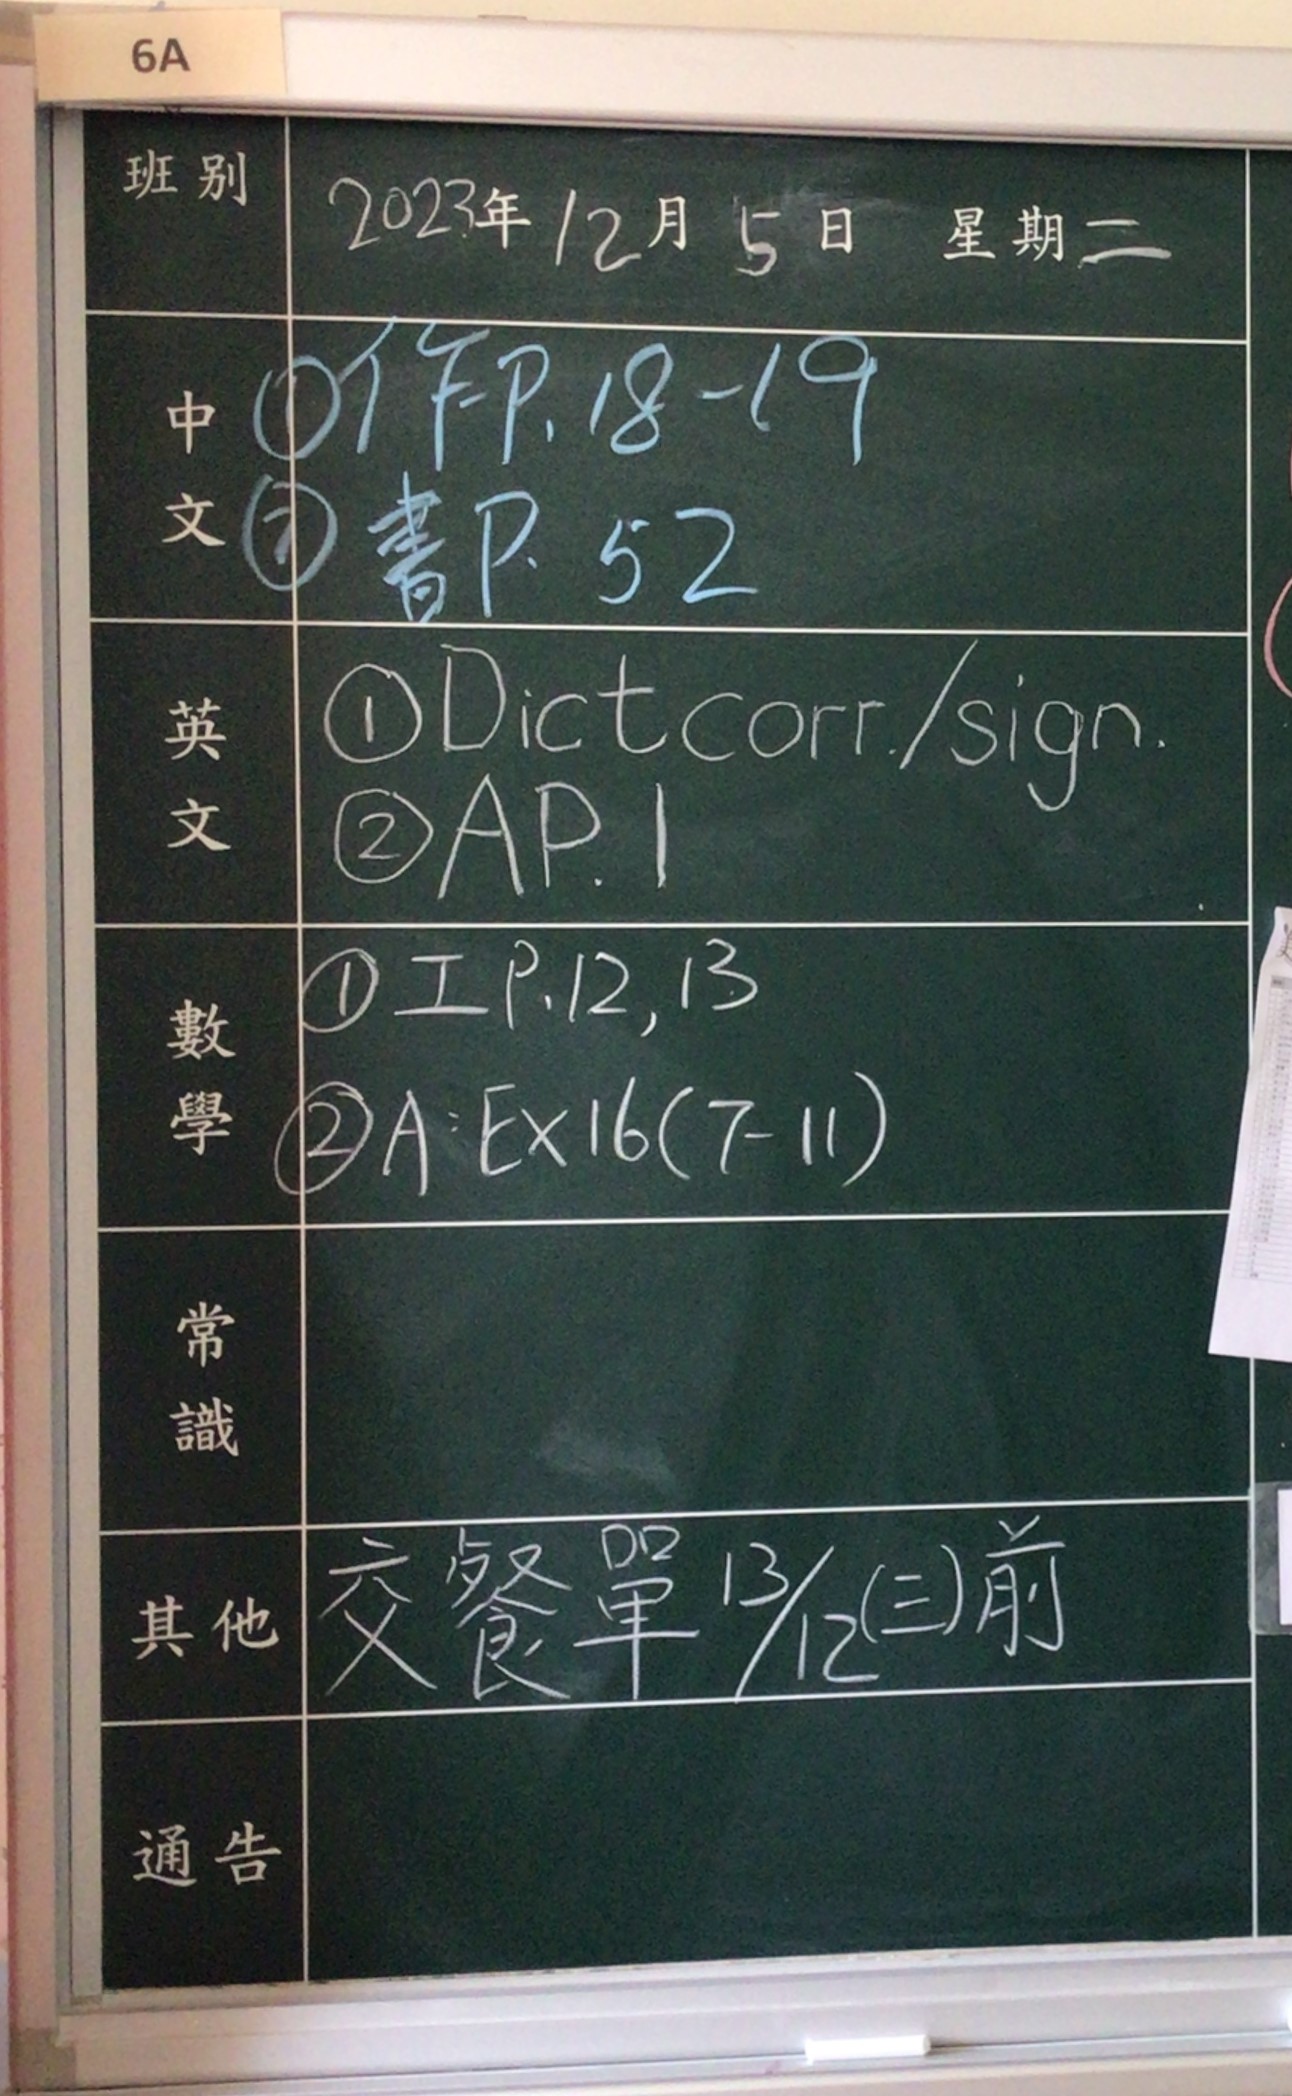 6A
班別 2023年12月5日 星期二
中文 ①作P.18-19
②書P.52
英文 ①Dict corr./sign.
②AP.1
數學 ①工P.12,13
②A:Ex16(7-11)
常識
其他 交餐單13/12(三)前
通告